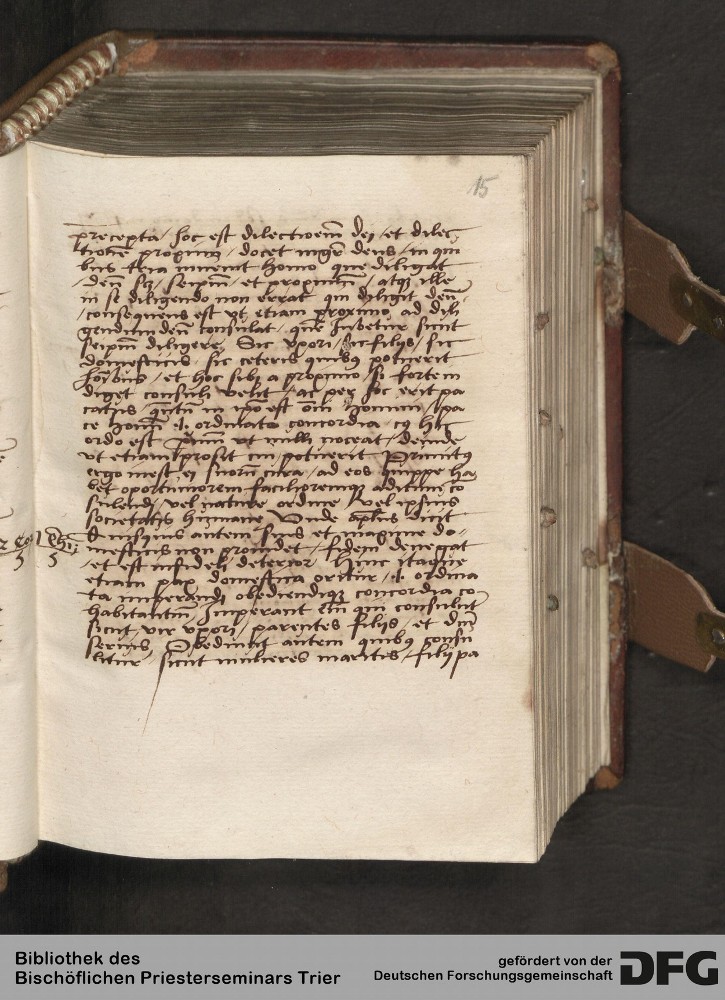 15
precepta / hoc est dilectioem dei / et dilec
tioem proximi / docet mgr deus / in qui
bus tria invenit homo que diligat
/ deu scz / seipm / et proximu / atqz ille
in se diligendo non errat qui diligit deu /
/ consequens est vt etiam proximo ad dili
gendum deu consulat / que iubetur sicut
seipm diligere / Sic vxori / sic filijs / sic
domesticis / sic ceteris quibus potuerit
hoibus / et hoc sibi a proximo / si
diget consuli velit / ac per hoc erit pa
catus / quantu in ipo est oi homini / pa
ce homi .i. ordinata concordia cuius hic
ordo est Primu vt nulli noceat / deinde
vt etiam prosit cui potuerit Primitus
ergo inest ei suoru cura / ad eos quippe ha
bet oportuniorem facilioremqz aditum co
sulendi / vel nature ordine / vel ipsius
societatis humane Vnde aplus dicit
Quisquis autem suis et maxime do
mesticis non prouidet / fidem denegat
/ et est infideli deterior Hinc itaque
etiam pax domestica oritur / .i. ordina
ta imperandi obediendiqz concordia co
habitantiu / Imperant em qui consulut
sicut vir vxori / parentes filijs / et dni
seruis / Obediunt autem quibus consu
litur / sicut mulieres maritis / filij pa
Bibliothek des
Bischöflichen Priesterseminars Trier
gefördert von der
Deutschen Forschungsgemeinschaft
DFG